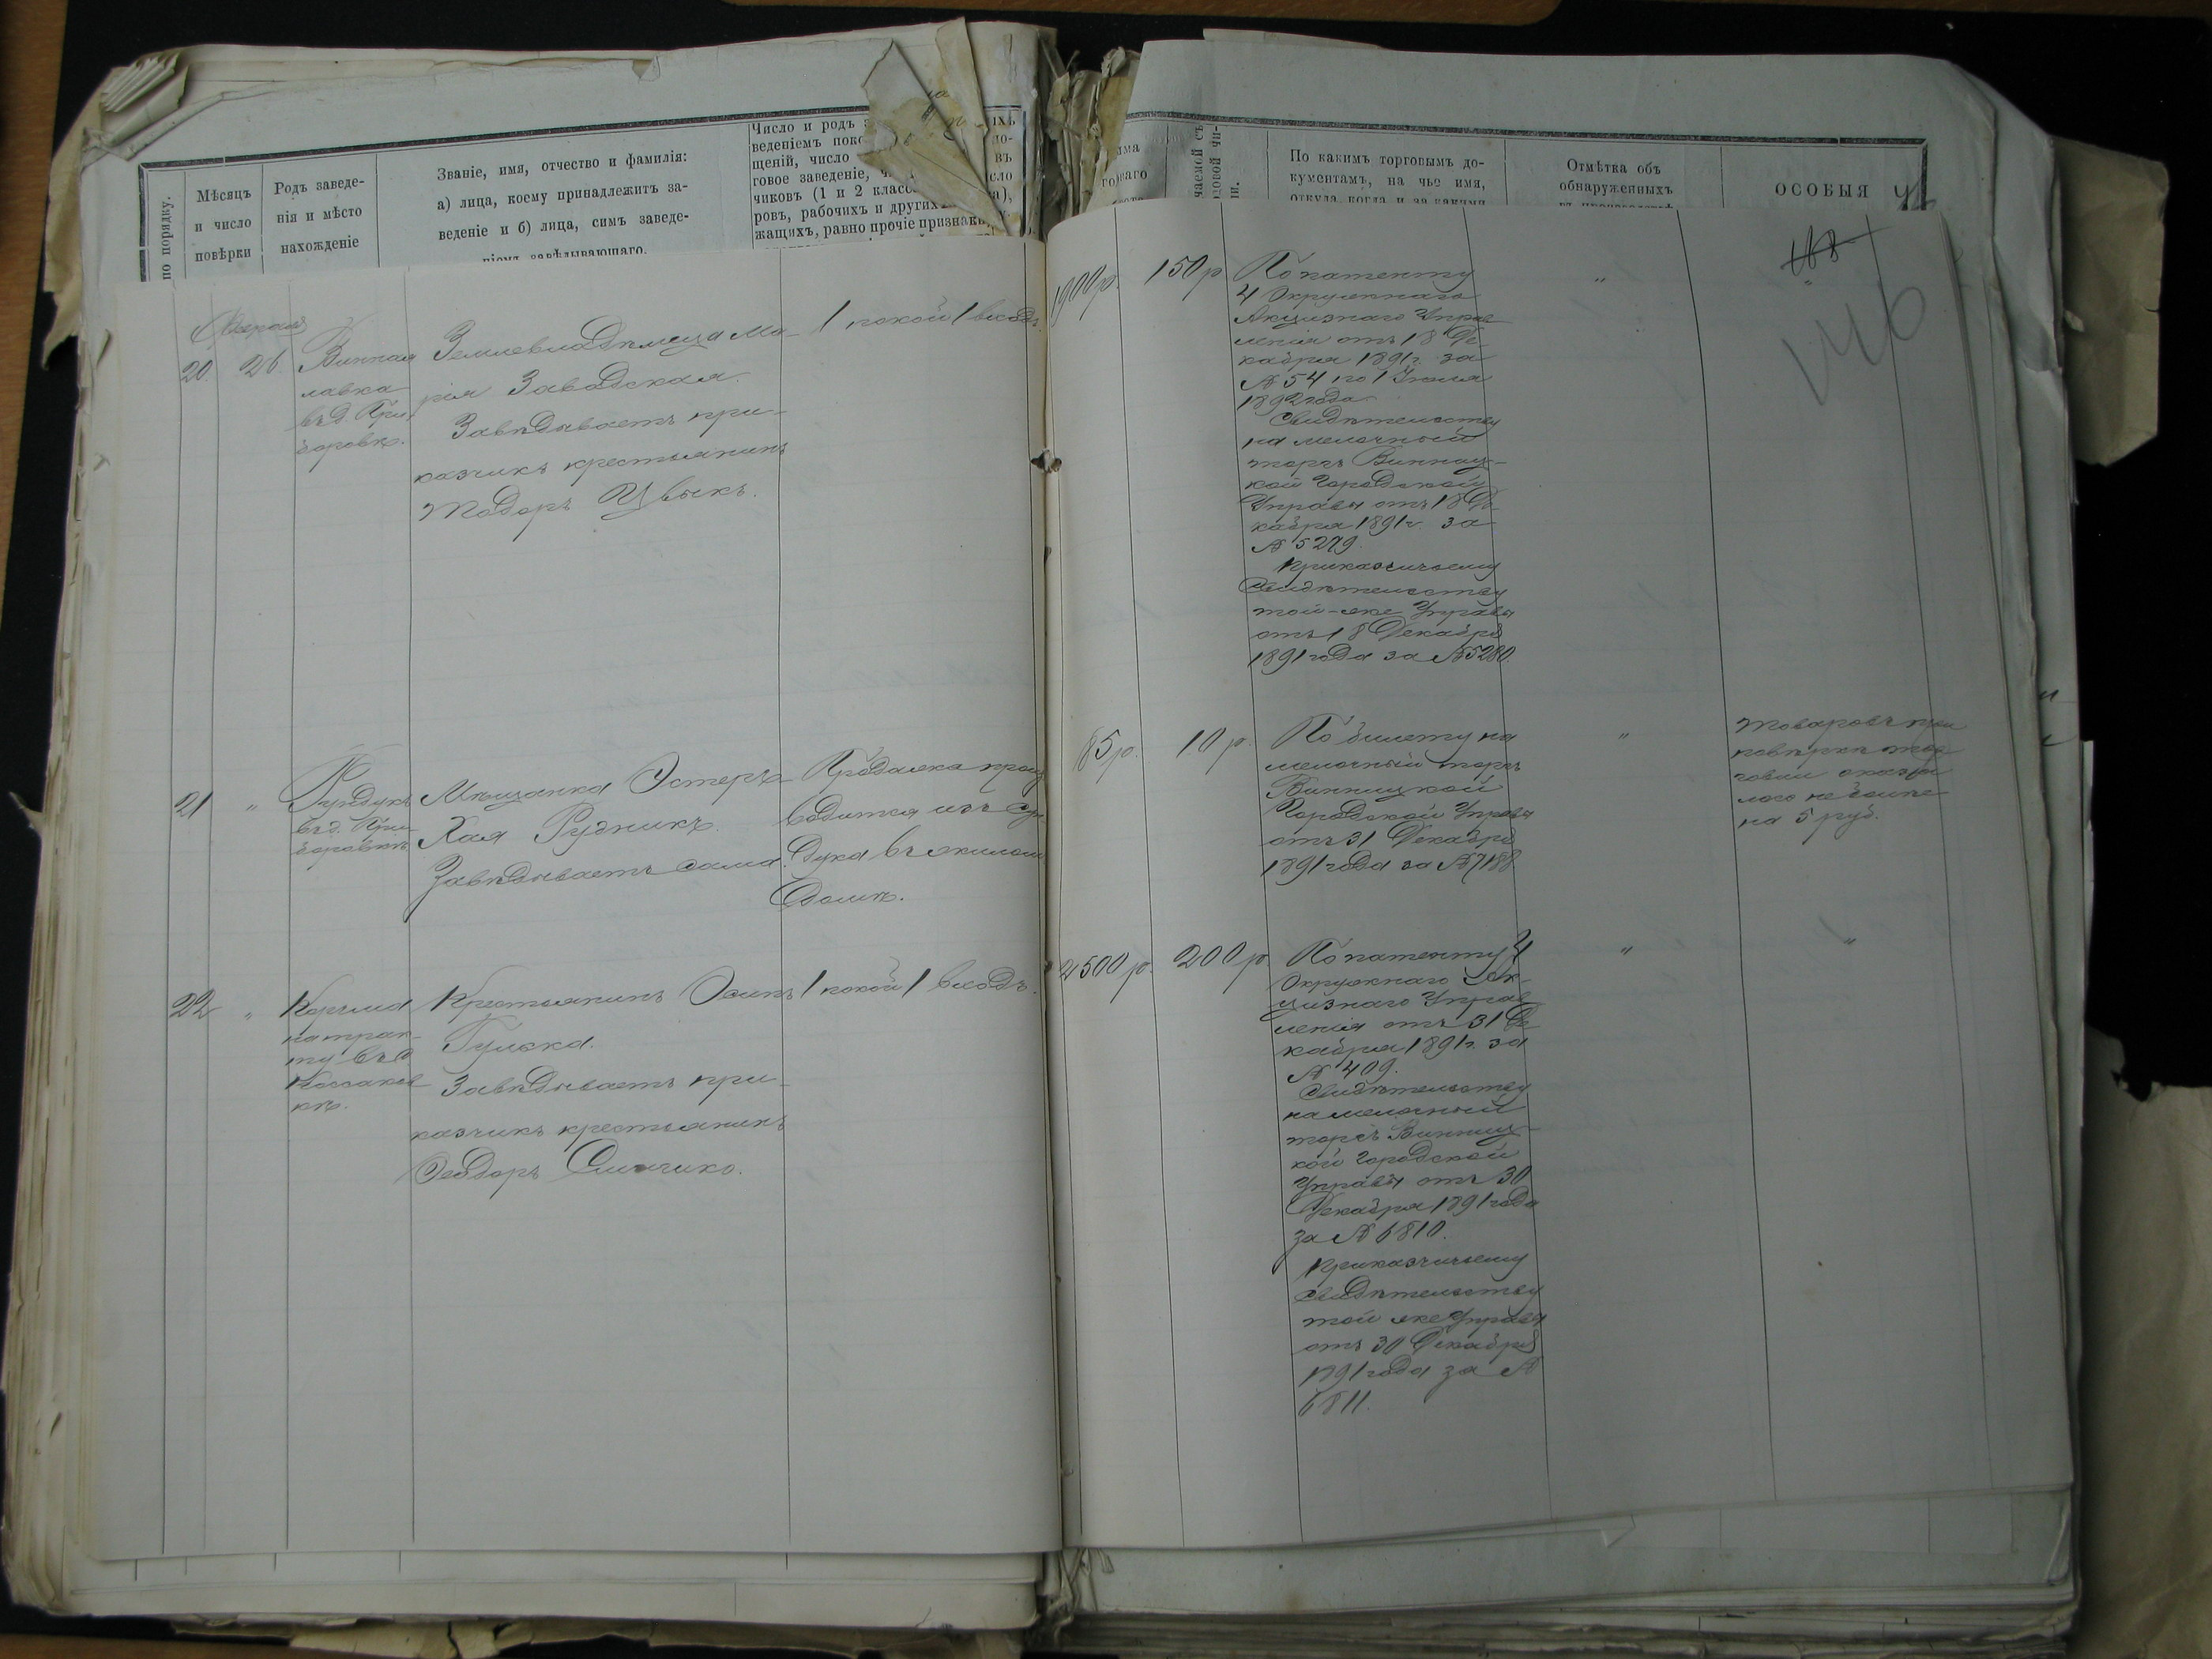 по порядку.
Мѣсяцъ
и число
повѣрки
Родъ заведе-
нія и мѣсто
нахожденіе
Званіе, имя, отчество и фамилія:
а) лица, коему принадлежитъ за-
веденіе и б) лица, симъ заведе-
ніемъ завѣдывающаго.
Число и родъ
веденіемъ
щеній, число
говое заведеніе,
чиковъ (1 и 2
ровъ, рабочихъ и другихъ
жащихъ, равно прочіе
По какимъ торговымъ до-
кументамъ, на чье имя,
откуда, когда и за какими
Отмѣтка объ
обнаруженныхъ
ОСОБЫЯ
146
Февраля
20. 26.
Винная
лавка
въ д. При-
боровкѣ.
Землевладѣлица Ма-
рія Завадская.
Завѣдываетъ при-
казчикъ крестьянинъ
Тодоръ Цвыкъ.
1 покой 1 входъ.
1900 р. 150 р
По патенту
4 Окружнаго
Акцизнаго Управ
ленія отъ 18 Де-
кабря 1891 г. за
№ 54 по 1 Іюля
1892 года
Свидѣтельству
на мелочный
торгъ Винниц-
кой Городской
Управы отъ 18 Де-
кабря 1891 г. за
№ 5279.
Приказчичьему
Свидѣтельству
той-же Управы
отъ 18 Декабря
1891 года за № 5280.
"
"
21 "
Сундукъ
въ д. При-
боровкѣ.
Мѣщанка Эстеръ
Хая Рудникъ.
Завѣдываетъ сама.
Продажа произ
водится изъ сун
дука въ жиломъ
домѣ.
85 р. 10 р.
По билету на
мелочный торгъ
Винницкой
Городской Управы
отъ 31 Декабря
1891 года за № 7188
"
Товаровъ при
повѣркѣ тор
говли оказа
лось не болѣе
на 5 руб.
22 "
Корчма
на трак-
ту въ д
Коссаков
кѣ.
Крестьянинъ Осипъ
Гулька.
Завѣдываетъ при-
казчикъ крестьянинъ
Ѳеодоръ
1 покой 1 входъ.
2500 р. 200 р.
По патенту 4
Окружнаго Ак-
цизнаго Управ
ленія отъ 31 Де-
кабря 1891 г. за
№ 409.
Свидѣтельству
на мелочный
торгъ Винниц-
кой Городской
Управы отъ 30
Декабря 1891 года
за № 6810.
Приказчичьему
свидѣтельству
той же Управы
отъ 30 Декабря
1891 года за №
6811.
"
"